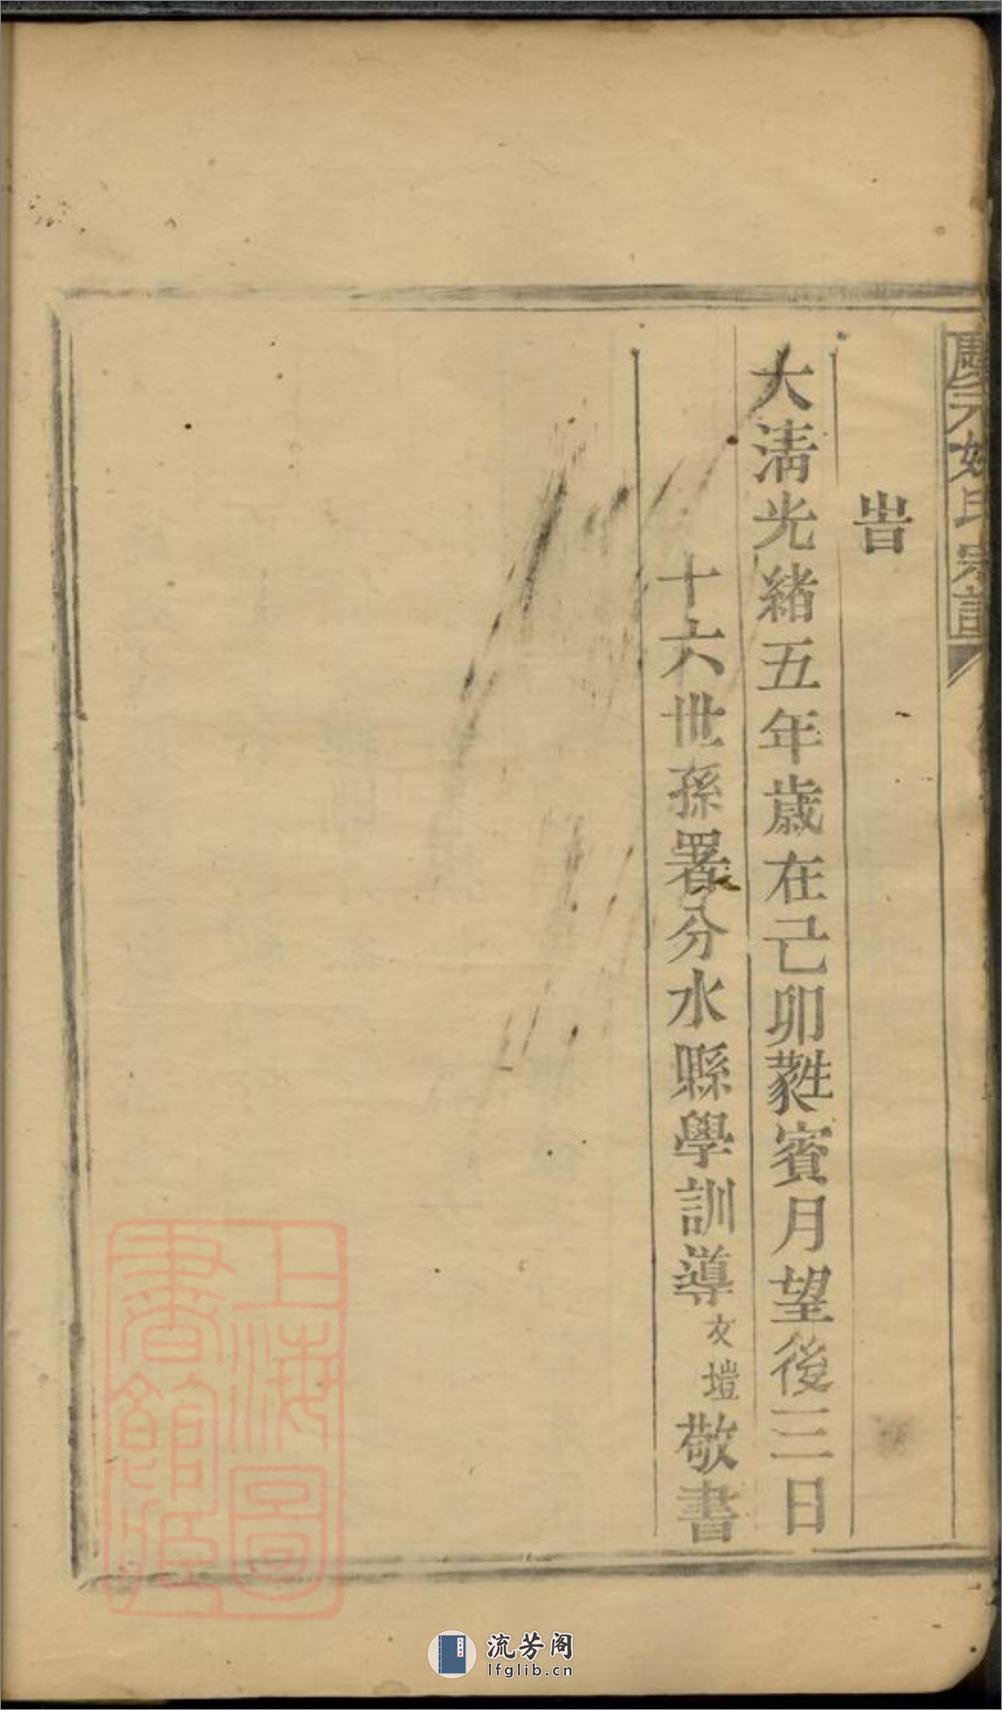 慶元姚氏宗譜
旹
大清光緒五年歲在己卯蕤賓月望後三日
十六世孫署分水縣學訓導文塏敬書
上海圖
書館藏
流芳阁
lfglib.cn